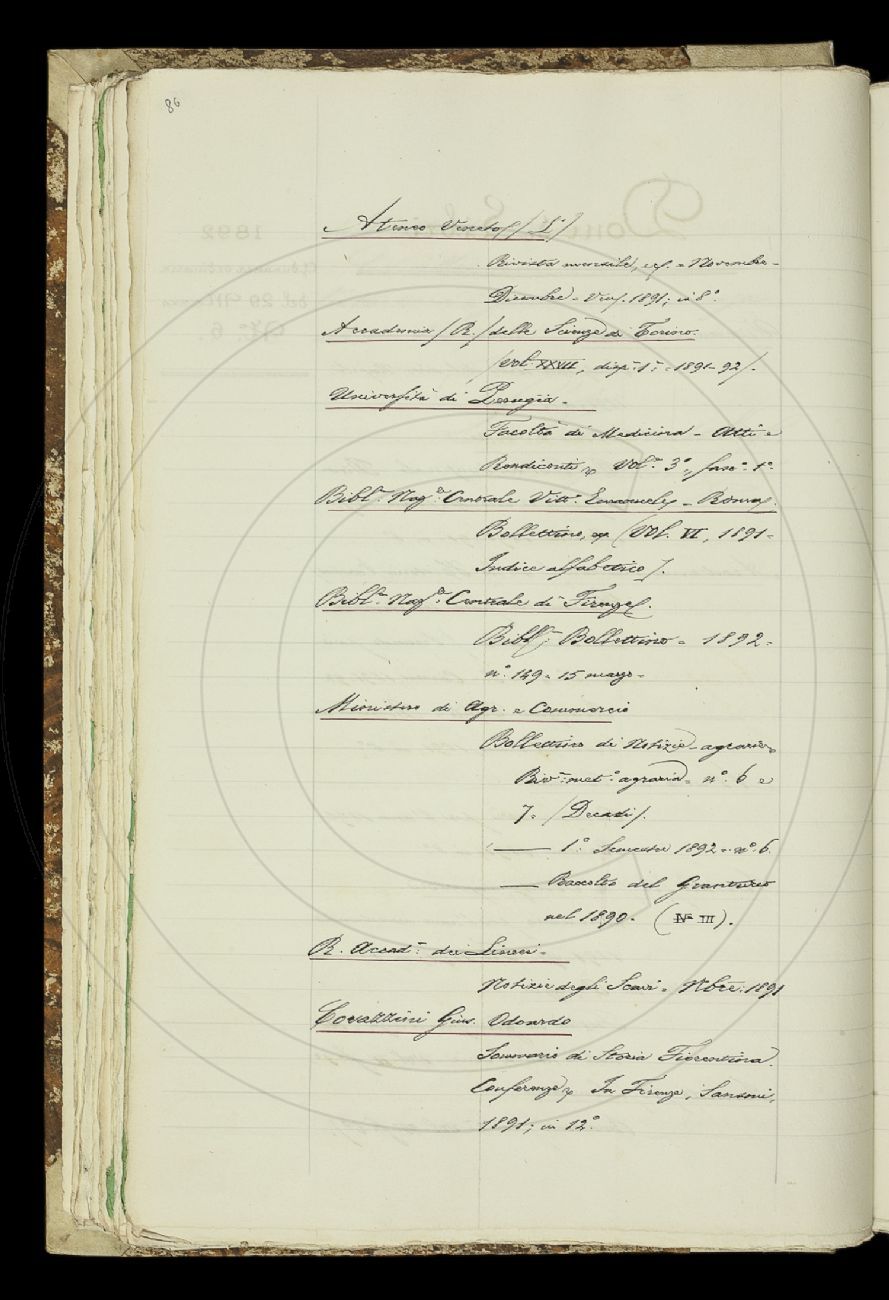 86
Ateneo Veneto (L')
Rivista mensile, ecc. = Novembre =
Dicembre = Ven. 1891; in 8°.
Accademia (R.) delle Scienze di Torino.
(Vol. XXVII, disp. 1ª = 1891-92).
Università di Perugia =
Facoltà di Medicina = Atti e
Rendiconti, Vol. 3°, fasc. 1°.
Bibl. Naz. Centrale Vitt. Emanuele = Roma.
Bollettino, (Vol. VI, 1891 =
Indice alfabetico).
Bibl. Naz. Centrale di Firenze.
Bibl. Bollettino = 1892 =
n°. 149 = 15 marzo =
Ministero di Agr. e Commercio
Bollettino di Notizie agrarie =
Riv. met. agraria = n°. 6 e
7 = (Decadi).
—— 1° Semestre 1892 = n°. 6.
—— Raccolto del Granturco
nel 1890 = (N° III).
R. Accad. dei Lincei =
Notizie degli Scavi = Nbre. 1891
Corazzini Gius. Odoardo
Sommario di Storia Fiorentina.
Conferenze In Firenze, Sansoni,
1891; in 12°.